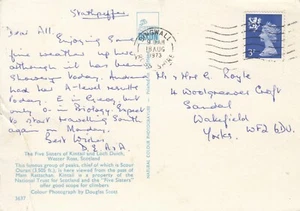 Strathpeffer
Dear All,
Enjoying some
fine weather up here
although it has been
showery today. Andrew
had his A-level results
today. E in Geog, but
only O in Biology. Expect
to start travelling South
again on Monday.
Best Wishes
The Five Sisters of Kintail and Loch Duich,
Wester Ross, Scotland
This famous group of peaks, chief of which is Scour
Ouran (3,505 ft.), is here viewed from the pass of
Mam Ratachan. Kintail is a property of the
National Trust for Scotland and the "Five Sisters"
offer good scope for climbers
Colour Photograph by Douglas Coutts
DINGWALL
AUG
1973
3P
Mr & Mrs R. Royle
4 Woodgreaves Croft
Sandal
Wakefield
Yorks. WF2